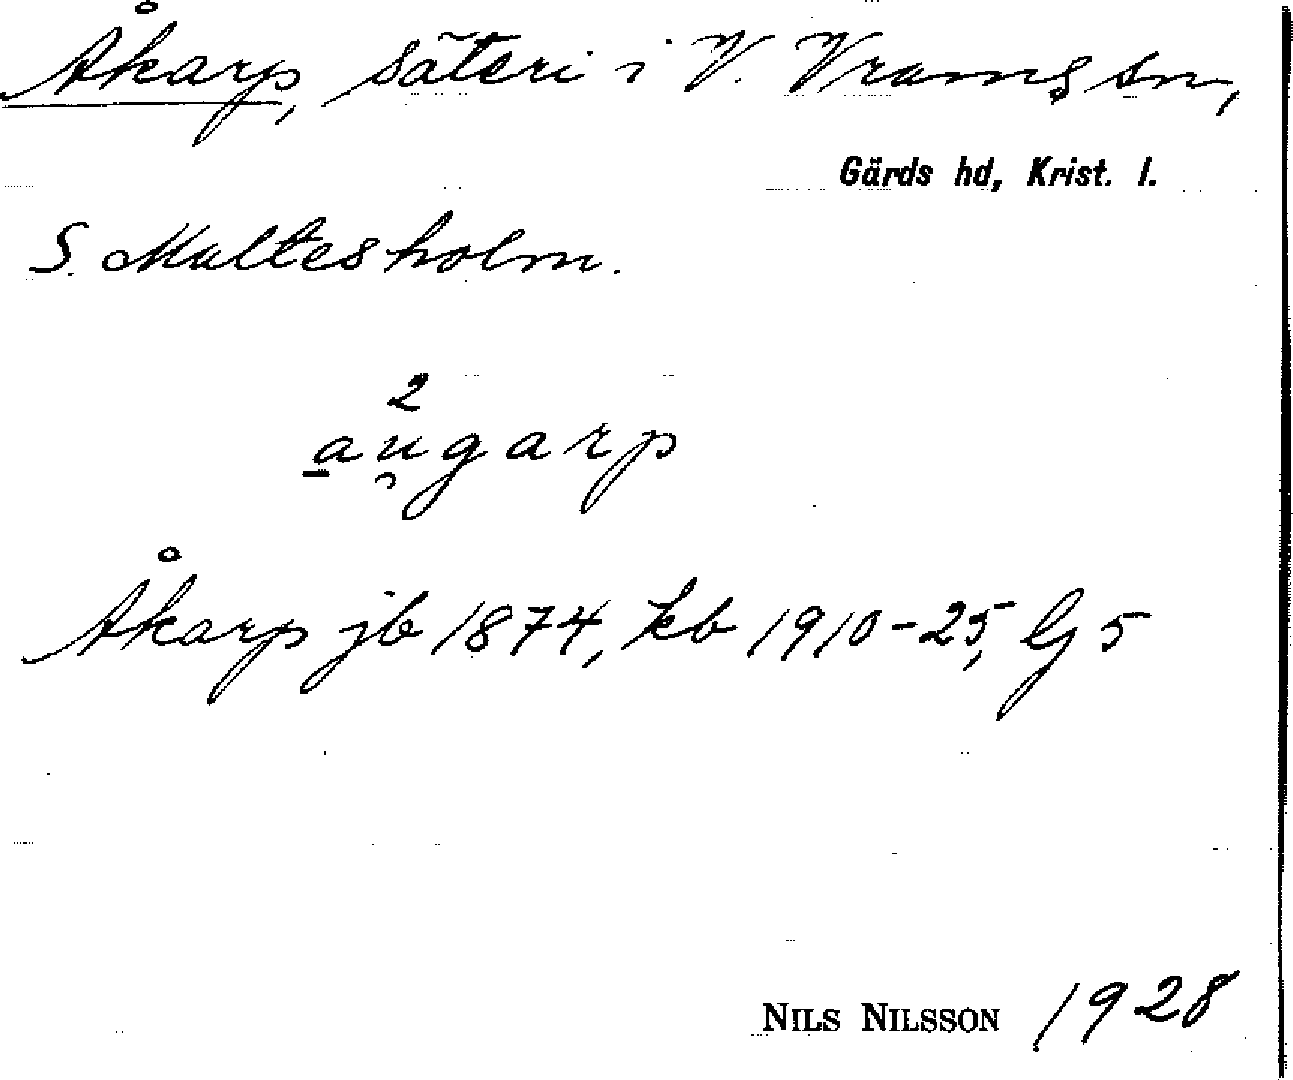 Åkarp, säteri i V. Vrams sn,
Gärds hd, Krist. l.
S. Maltesholm.
2
a̲u̯garp
Åkarp jb 1874, kb 1910-25, G 5
NILS NILSSON 1928